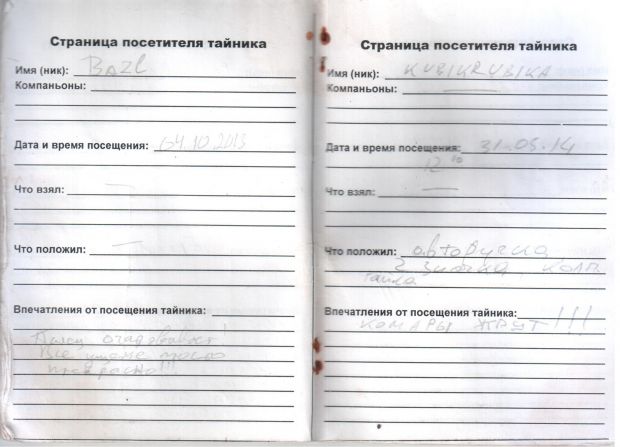 Страница посетителя тайника
Имя (ник): BAZL
Компаньоны:
Дата и время посещения: 04.10.2013
Что взял:
Что положил:
Впечатления от посещения тайника:
прекрасно!!!
Страница посетителя тайника
Имя (ник): KUBIKRUBIKA
Компаньоны: —
Дата и время посещения: 31-05-14
12 10
Что взял: —
Что положил: авторучка
2
Впечатления от посещения тайника:
КОМАРЫ ЖРУТ!!!